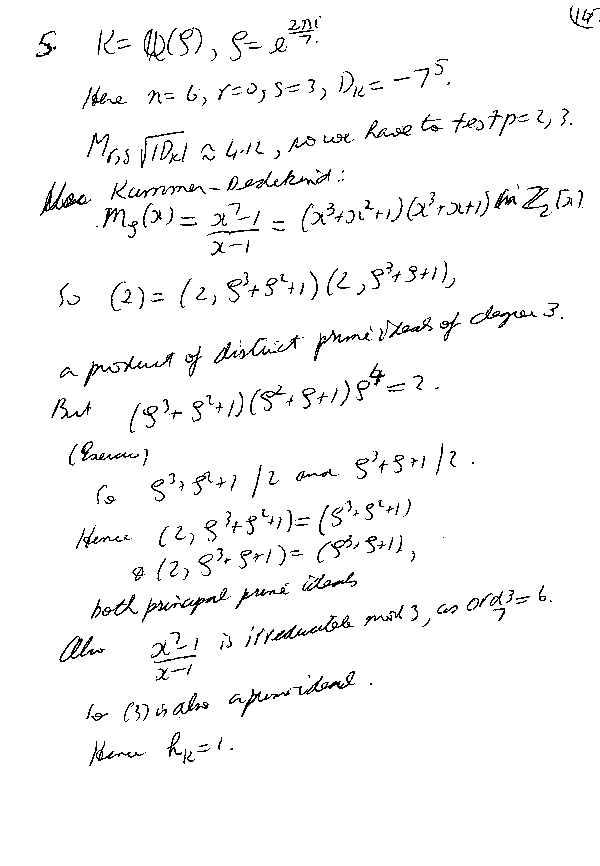 (14)
5. K = ℚ(ζ), ζ = e^{2πi/7}.
Here n = 6, r = 0, s = 3, D_K = -7^5.
M_{r,s} √|D_K| ≈ 4.12, so we have to test p = 2, 3.
Kummer-Dedekind:
m_ζ(x) = (x^7-1)/(x-1) = (x^3+x^2+1)(x^3+x+1) in ℤ_2[x]
So (2) = (2, ζ^3+ζ^2+1)(2, ζ^3+ζ+1),
a product of distinct prime ideals of degree 3.
But (ζ^3+ζ^2+1)(ζ^2+ζ+1)ζ^4 = 2.
(Exercise)
So ζ^3+ζ^2+1 / 2 and ζ^3+ζ+1 / 2.
Hence (2, ζ^3+ζ^2+1) = (ζ^3+ζ^2+1)
& (2, ζ^3+ζ+1) = (ζ^3+ζ+1),
both principal prime ideals
Also (x^7-1)/(x-1) is irreducible mod 3, as ord_7 3 = 6.
So (3) is also a prime ideal.
Hence h_K = 1.